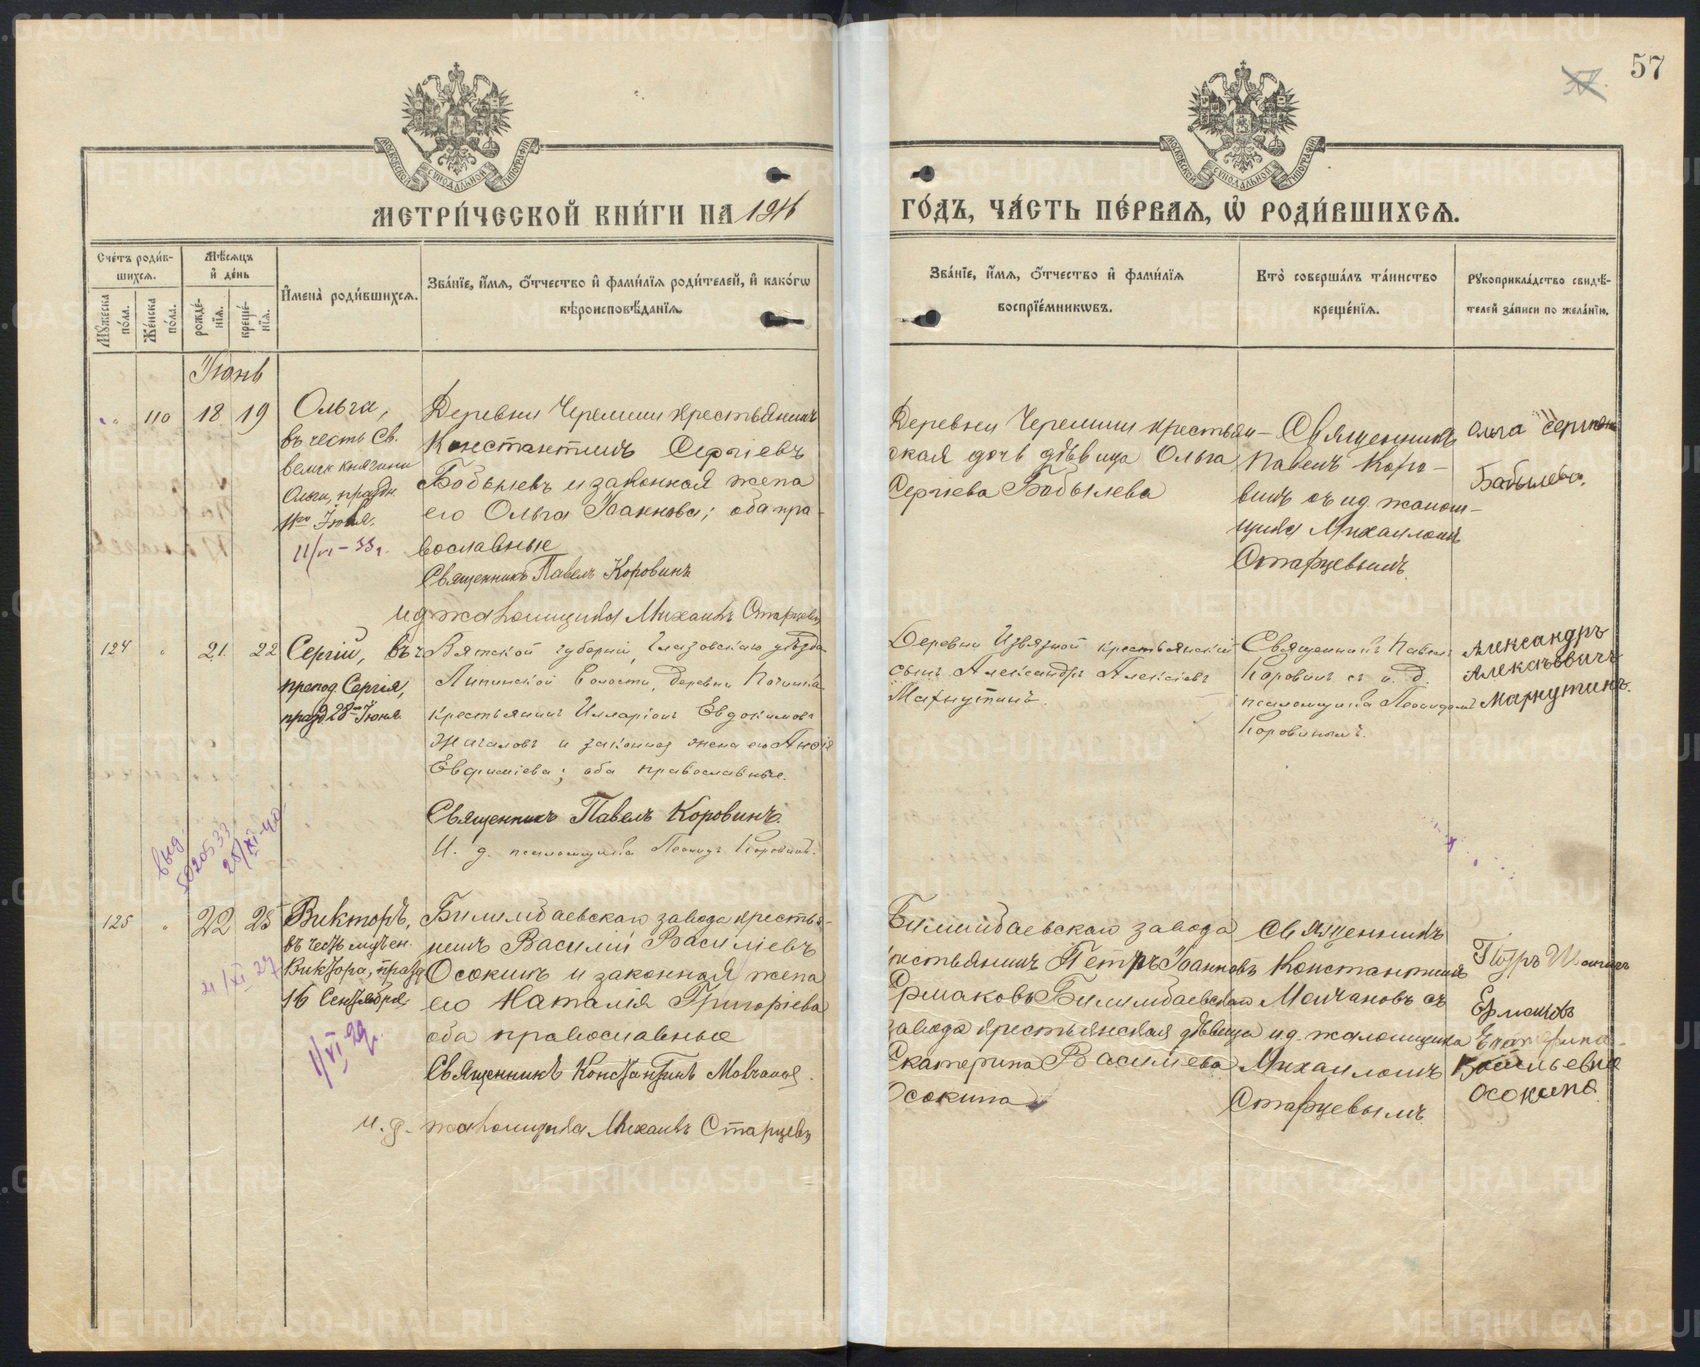 57
МЕТРИ́ЧЕСКОЙ КНИ́ГИ НА 1916
ГО́ДЪ, ЧА́СТЬ ПЕ́РВАѦ, Ѡ҆ РОДИ́ВШИХСѦ.
МОСКОВСКОЙ СѴНОДАЛЬНОЙ ТИПОГРАФІИ
МОСКОВСКОЙ СѴНОДАЛЬНОЙ ТИПОГРАФІИ
Сче́тъ роди́в-
шихсѧ.
Мꙋжеска по́ла.
Же́нска по́ла.
Мѣ́сѧцъ и҆ де́нь
рожде́-
нїѧ.
креще́-
нїѧ.
И҆мена̀ роди́вшихсѧ.
Зва́нїе, и҆́мѧ, ѻ҆́тчество и҆ фами́лїѧ роди́телей, и҆ како́гѡ
вѣроисповѣ́данїѧ.
Зва́нїе, и҆́мѧ, ѻ҆́тчество и҆ фами́лїѧ
воспрїе́мникѡвъ.
Кто̀ соверша́лъ та́инство
креще́нїѧ.
Рꙋкоприкла́дство свидѣ́-
телей за́писи по жела́нїю.
Іюнь
110 18 19
Ольга,
въ честь Св.
велик. княгини
Ольги, праздн.
11го Іюля.
11/VI-33 г.
Деревни Черемши крестьянинъ
Константинъ Сергіевъ
Бобылевъ и законная жена
его Ольга Іоаннова; оба пра-
вославные
Священникъ Павелъ Коровинъ
и д псаломщика Михаилъ Старцевъ
Деревни Черемши крестьян-
ская дочь дѣвица Ольга
Сергіева Бобылева
Священникъ
Павелъ Коро-
винъ съ и д. псалом-
щика Михаиломъ
Старцевымъ.
Ольга Сергіевна
Бабылева.
124 21 22
Сергій, въ ч
препод. Сергія,
празд. 28го Іюня
Вятской губерніи, Глазовскаго уѣзда
Лыпинской волости, деревни Починка
крестьянинъ Илларіонъ Евдокимовъ
Жигаловъ и законная жена его
Евфиміева; оба православные.
Священникъ Павелъ Коровинъ
И. д. псаломщика Леонидъ Коровинъ.
Деревни Извязной крестьянскій
сынъ Александръ Алексѣевъ
Маркутинъ.
Священникъ Павелъ
Коровинъ съ и. д.
псаломщика Леонидомъ
Коровинымъ.
Александръ
Алексѣевичъ
Маркутинъ.
выд.
5020533
28/XI-40
125 22 25
Викторъ,
въ честь мучен.
Виктора, празд
16 Сентября
21/XI 27
1/VI-29г.
Билимбаевскаго завода крестья-
нинъ Василій Василіевъ
Осокинъ и законная жена
его Наталія Григоріева
оба православные
Священникъ Константинъ Молчановъ
и. д. псаломщика Михаилъ Старцевъ
Билимбаевскаго завода
крестьянинъ Петръ Іоанновъ
Ермаковъ Билимбаевскаго
завода крестьянская дѣвица
Екатерина Василіева
Осокина
Священникъ
Константинъ
Молчановъ съ
и.д. псаломщика
Михаиломъ
Старцевымъ
Петръ
Ермаковъ
Екатерина
Васильевна
Осокина.